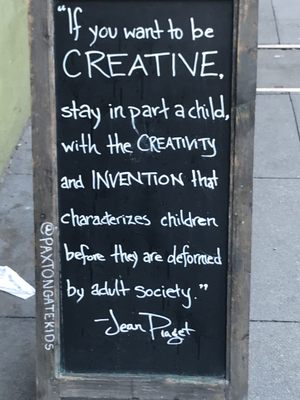 "If you want to be
CREATIVE,
stay in part a child,
with the CREATIVITY
and INVENTION that
characterizes children
before they are deformed
by adult society."
-Jean Piaget
@PAXTONGATEKIDS